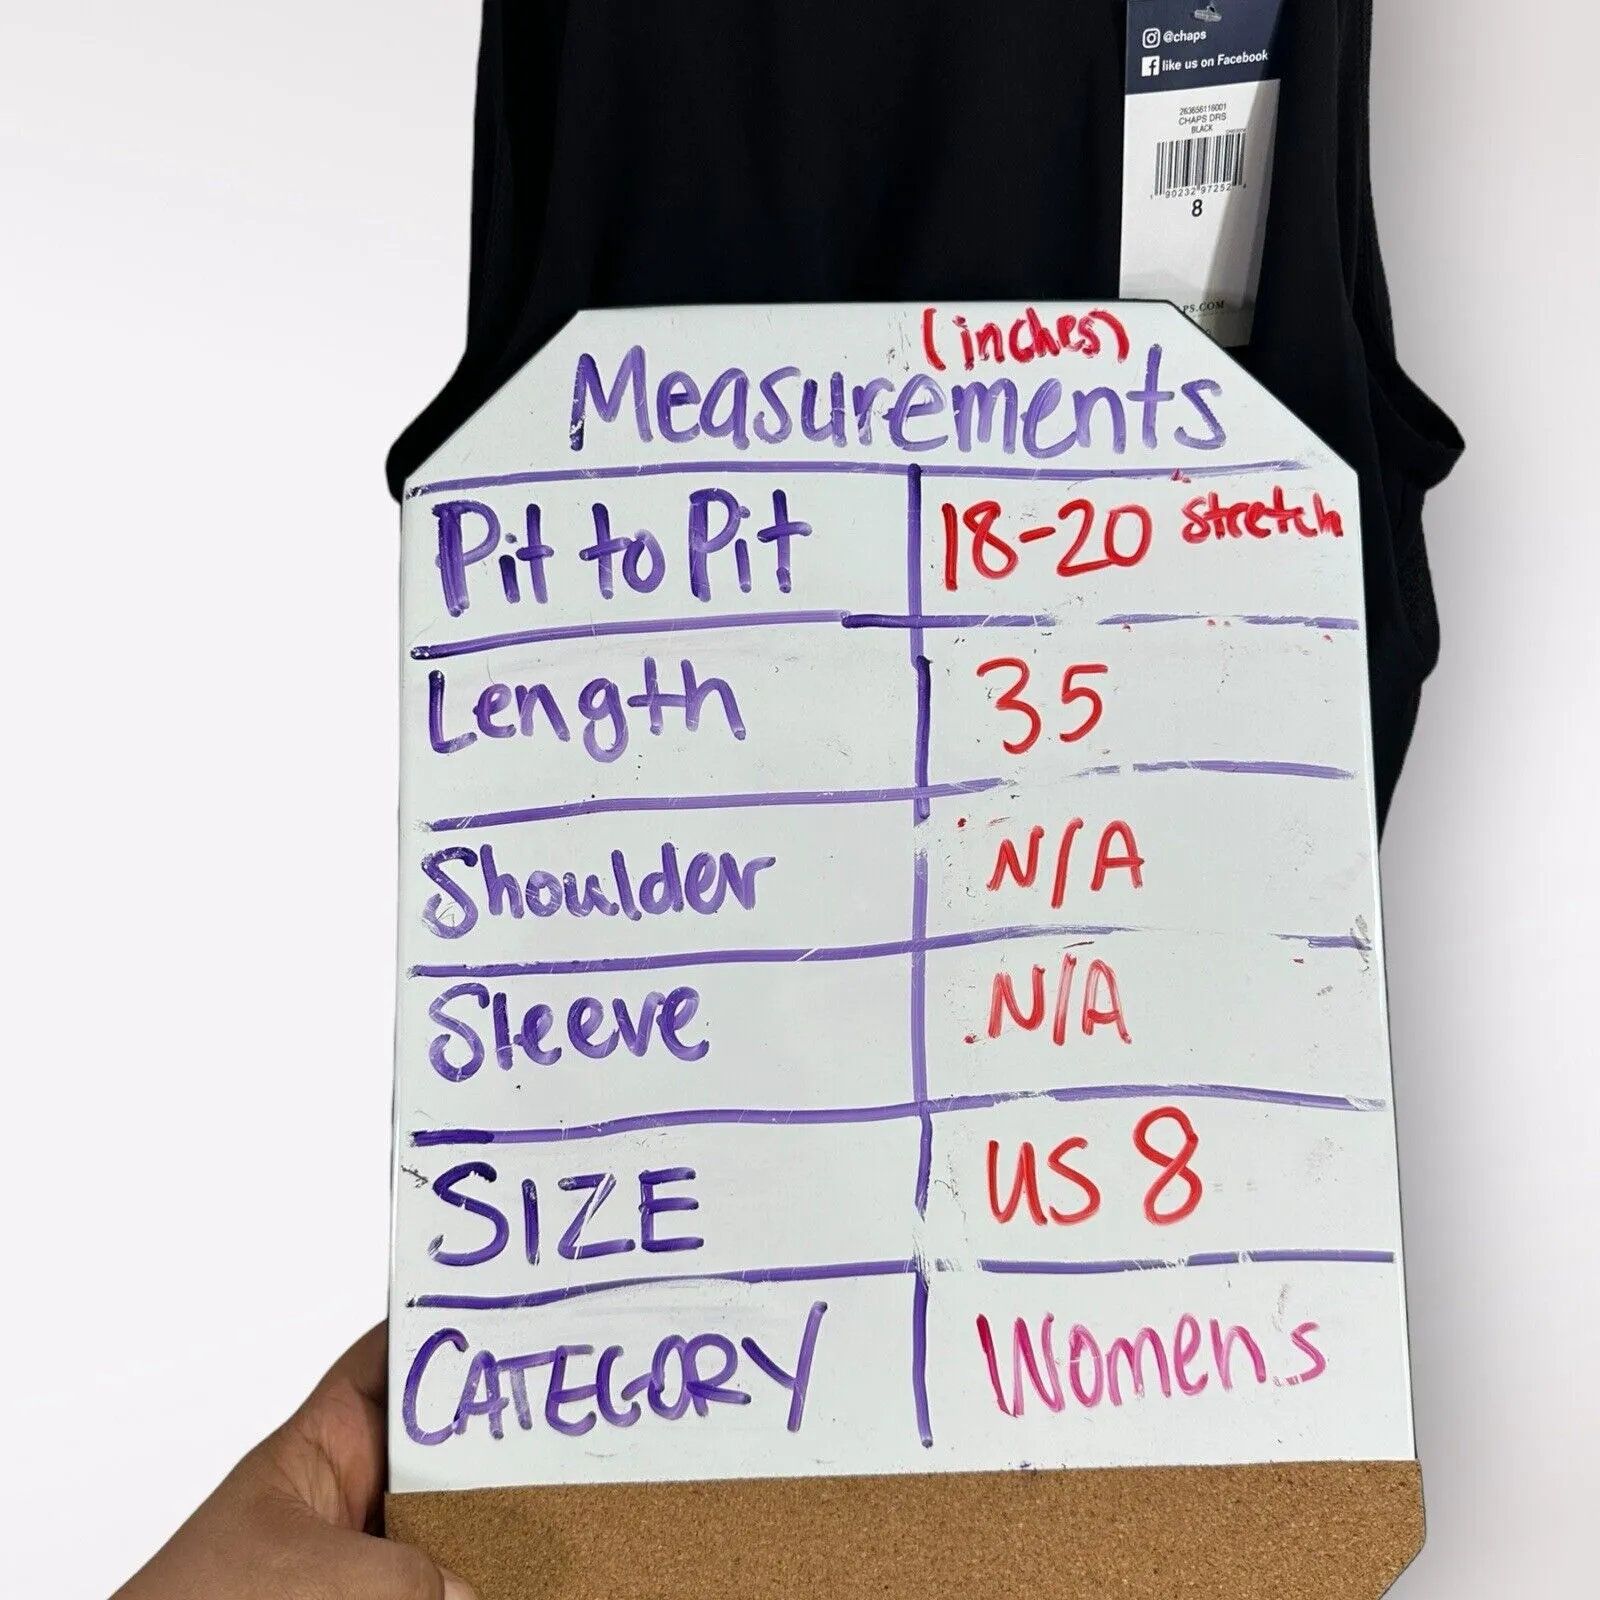 @chaps
like us on Facebook
263656116001
CHAPS DRS
BLACK
90232 97252
8
PS.COM
(inches)
Measurements
Pit to Pit 18-20 stretch
Length 35
Shoulder N/A
Sleeve N/A
SIZE US 8
CATEGORY Women's